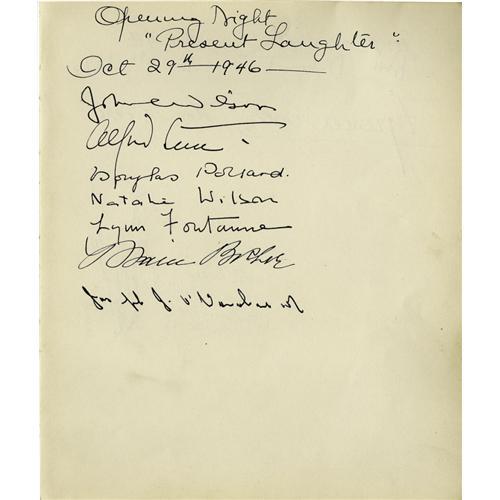 Opening Night
"Present Laughter".
Oct 29th 1946
John C Wilson
Alfred Lunt
Douglas Pollard.
Natalie Wilson
Lynn Fontanne
Joseph J.